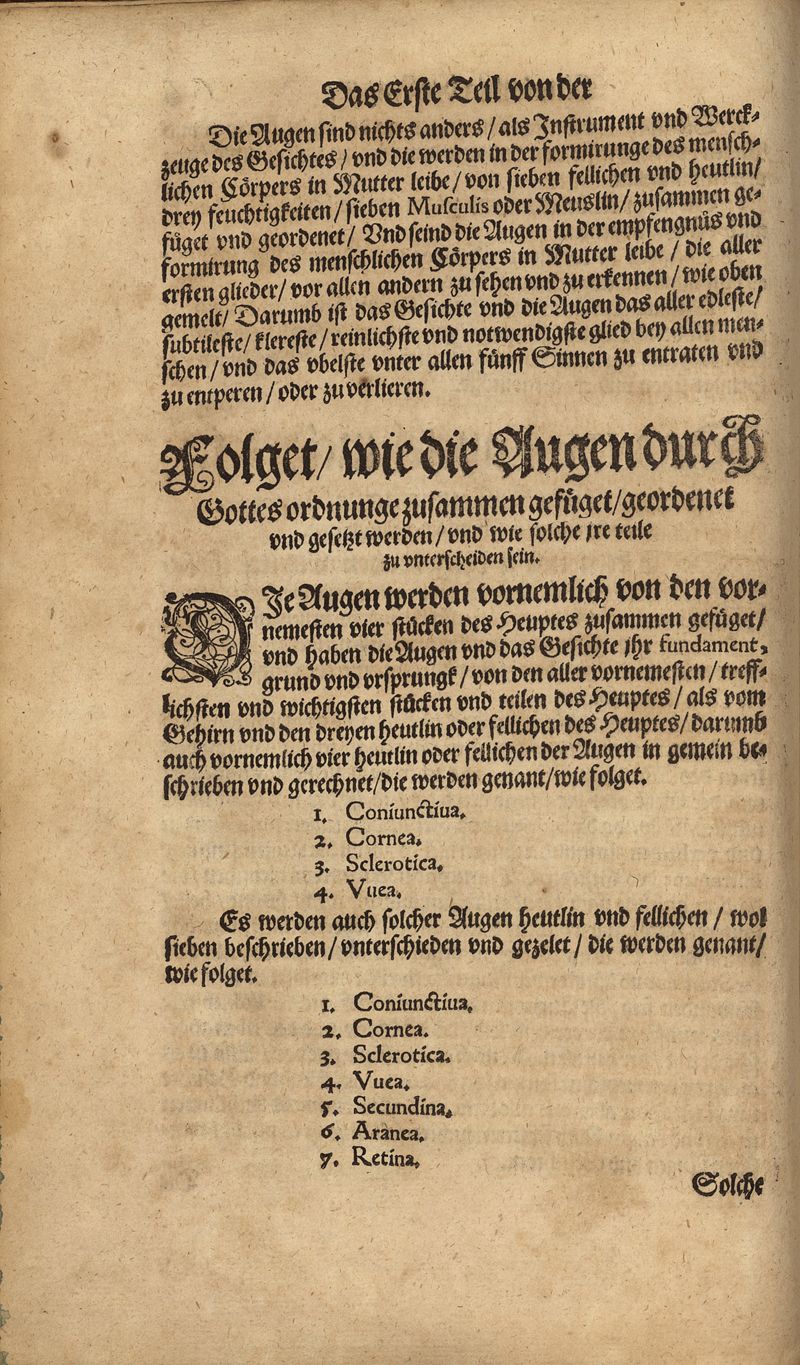 Das Erste Teil von der
Die Augen sind nichts anders / als Instrument vnd Werck-
zeuge des Gesichtes / vnd die werden in der formirunge des mensch-
lichen Cörpers in Mutter leibe / von sieben fellichen vnd heutlin /
drey feuchtigkeiten / sieben Musculis oder Meuslin / zusammen ge-
füget vnd geordenet / Vnd seind die Augen in der empfengnüs vnd
formirung des menschlichen Cörpers in Mutter leibe / die aller
ersten glieder / vor allen andern zu sehen vnd zu erkennen / wie oben
gemelt / Darumb ist das Gesichte vnd die Augen das aller edleste /
subtileste / klereste / reinlichste vnd notwendigste glied bey allen men-
schen / vnd das vbelste vnter allen fünff Sinnen zu entraten vnd
zu entperen / oder zu verlieren.
Folget / wie die Augen durch
Gottes ordnunge zusammen gefüget / geordenet
vnd gesetzt werden / vnd wie solche jre teile
zu vnterscheiden sein.
DIe Augen werden vornemlich von den vor-
nemesten vier stücken des Heuptes zusammen gefüget /
vnd haben die Augen vnd das Gesichte jhr fundament,
grund vnd vrsprungk / von den aller vornemesten / treff-
lichsten vnd wichtigsten stücken vnd teilen des Heuptes / als vom
Gehirn vnd den dreyen heutlin oder fellichen des Heuptes / darumb
auch vornemlich vier heutlin oder fellichen der Augen in gemein be-
schrieben vnd gerechnet / die werden genant / wie folget.
1. Coniunctiua.
2. Cornea.
3. Sclerotica.
4. Vuea.
Es werden auch solcher Augen heutlin vnd fellichen / wol
sieben beschrieben / vnterschieden vnd gezelet / die werden genant /
wie folget.
1. Coniunctiua.
2. Cornea.
3. Sclerotica.
4. Vuea.
5. Secundina.
6. Aranea.
7. Retina.
Solche